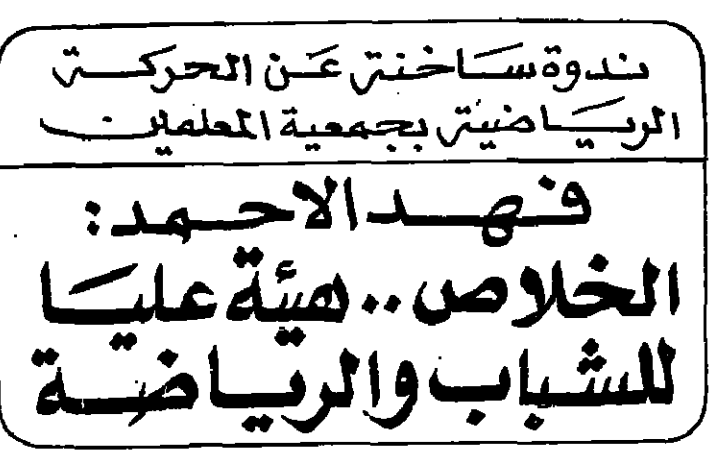 ندوة ساخنة عن الحركة
الرياضية بجمعية المعلمين
فهد الاحمد:
الخلاص.. هيئة عليا
للشباب والرياضة